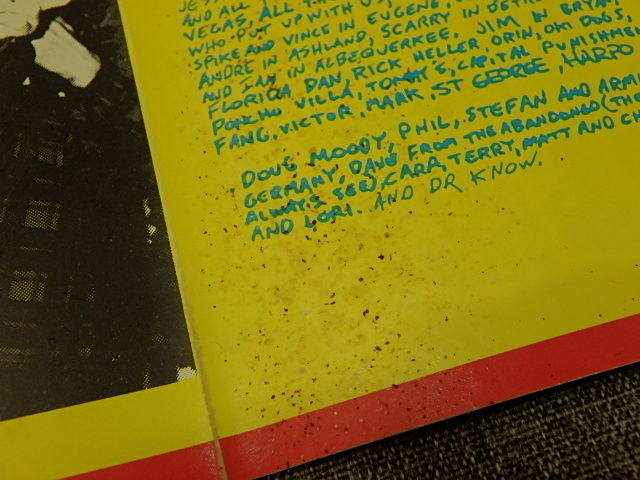 AND ALL
VEGAS, ALL
WHO PUT UP WITH US,
SPIKE AND VINCE IN EUGENE,
ANDRE IN ASHLAND, SCARRY IN DETRO
AND IAN IN ALBEQUERKEE. JIM IN BRYAN,
FLORIDA, DAN, RICK, HELLER, ORIN, OKI DOGS,
PONCHO VILLA, TOMMY'S, CAPITAL PUNISHME
FANG, VICTOR, MARK, ST GEORGE, HARPO
DOUG MOODY, PHIL, STEFAN AND ARM
GERMANY, DAVE FROM THE ABANDONED (TH
ALWAYS SEE), CARA, TERRY, MATT AND CH
AND LORI. AND DR KNOW.